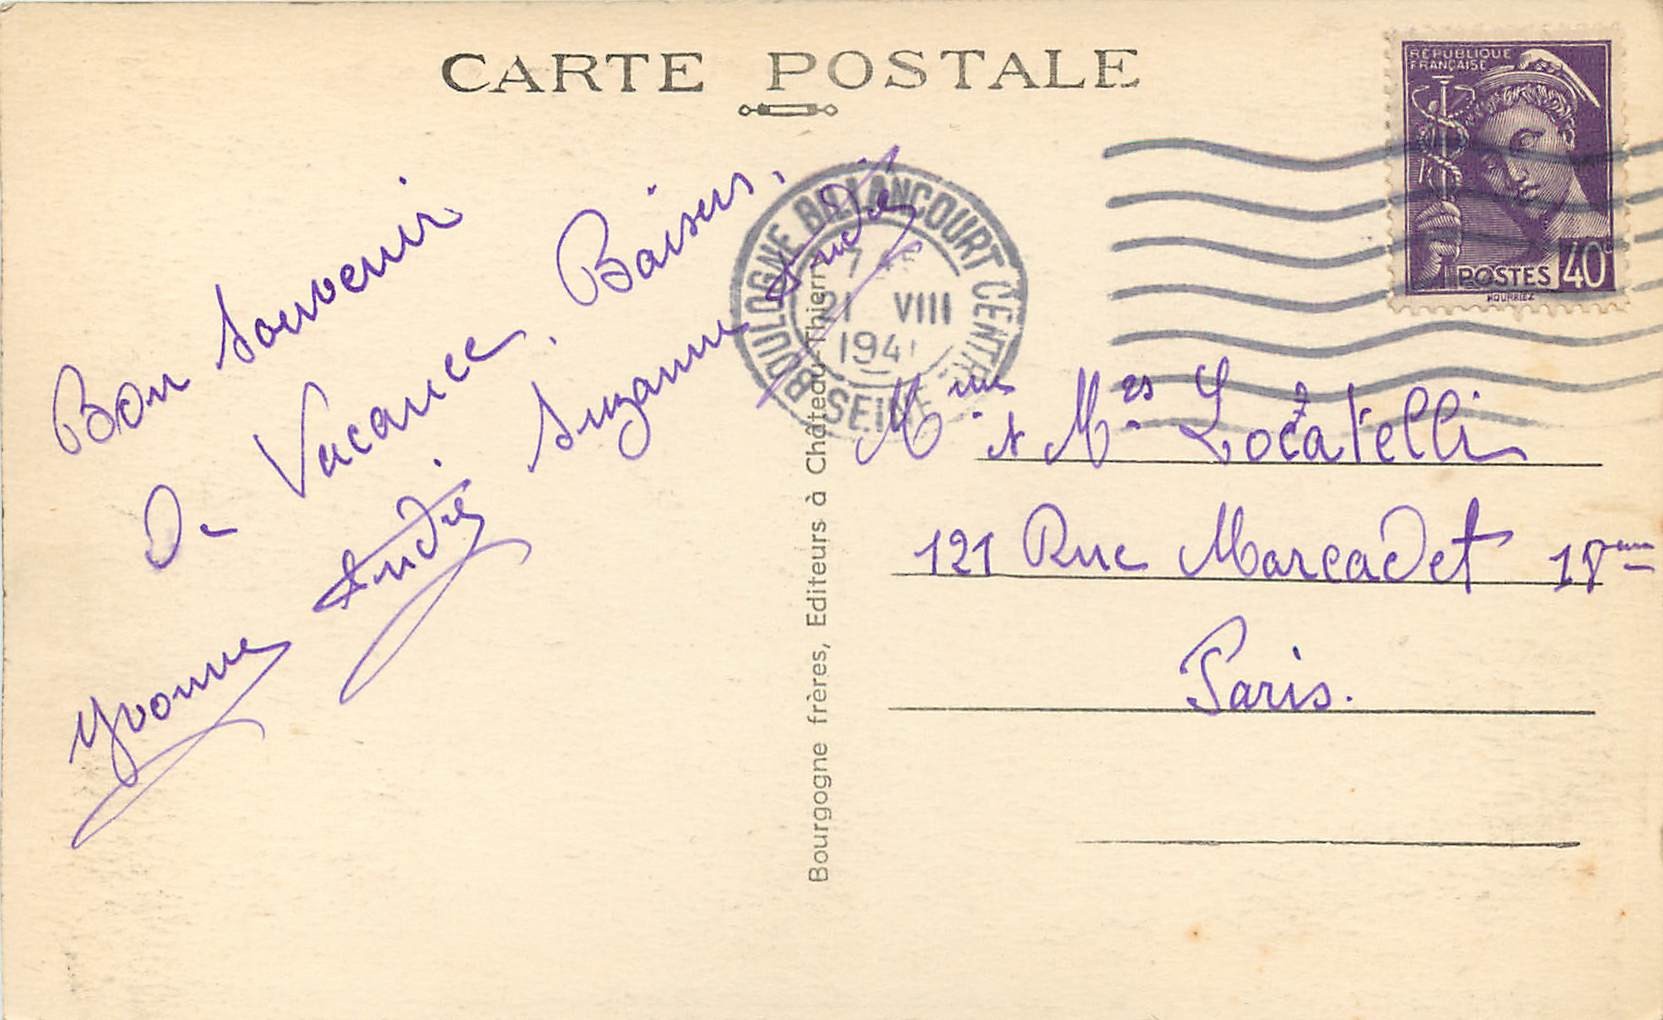 CARTE POSTALE
RÉPUBLIQUE
FRANÇAISE
POSTES 40c
HOURRIEZ
BOULOGNE BILLANCOURT CENTR
7
21 VIII
194
SEINE
Bon Souvenir
De Vacance, Baisers,
Yvonne André Suzanne André
Bourgogne frères, Editeurs à Château-Thierry
Mme et Mrs Locatelli
121 Rue Marcadet 18eme
Paris.